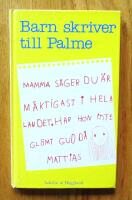 Barn skriver
till Palme
MAMMA SÄGER DU ÄR
MÄKTIGAST I HELA
LANDET. HAR HON INTE
GLÖMT GUD DÅ
MATTIAS